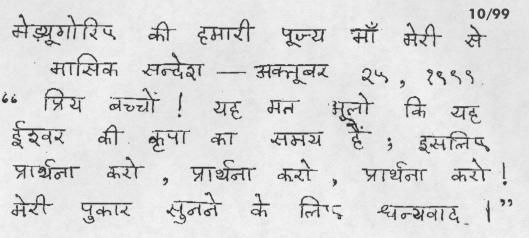 10/99
मेड्यूगोरिए की हमारी पूज्य माँ मेरी से
मासिक सन्देश — अक्तूबर २५, १९९९
“ प्रिय बच्चों ! यह मत भूलो कि यह
ईश्वर की कृपा का समय हैं ; इसलिए
प्रार्थना करो , प्रार्थना करो , प्रार्थना करो !
मेरी पुकार सुनने के लिए धन्यवाद । ”